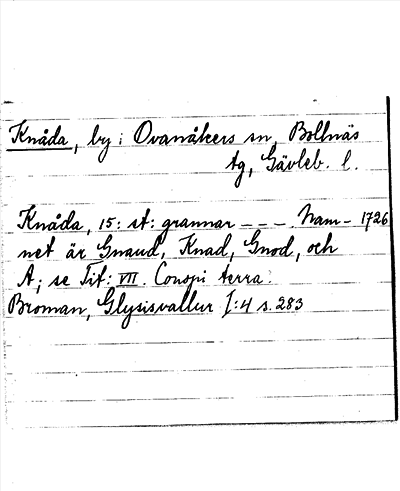 Knåda, by i Ovanåkers sn, Bollnäs
tg, Gävleb. l.
Knåda, 15: st: grannar – – –. Nam- 1726
net är Gnaud, Knad, Gnod, och
A; se Tit: VII. Conspi terra.
Broman, Glysisvallur I:4 s. 283